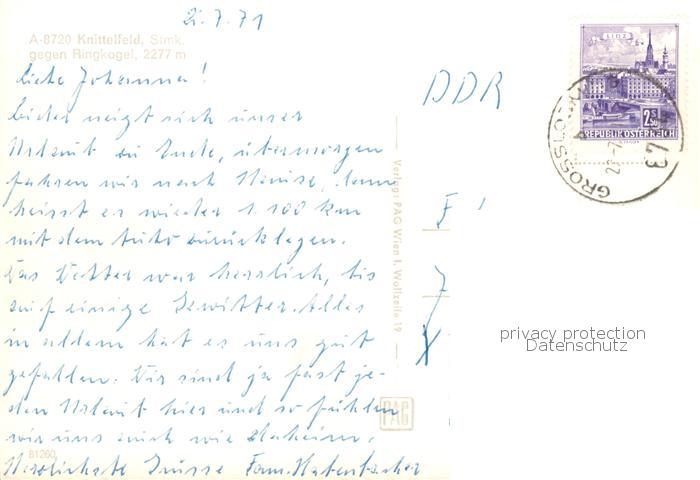 21.7.71
A-8720 Knittelfeld, Stmk.
gegen Ringkogel, 2277 m
Liebe Johanna!
Leider neigt sich unser
Urlaub zu Ende, übermorgen
fahren wir nach Hause, dann
heisst es wieder 1.100 km
mit dem Auto zurücklegen.
Das Wetter war herrlich, bis
auf einige Gewitter. Alles
in allem hat es uns gut
gefallen. Wir sind ja fast je-
den Urlaub hier und so fühlen
wir uns auch wie daheim.
Herzlichste Grüsse Fam.
B1260
Verlag: PAG Wien I, Wollzeile 19
PAG
DDR
LINZ
2.S50
REPUBLIK ÖSTERREICH
GROSS
privacy protection
Datenschutz